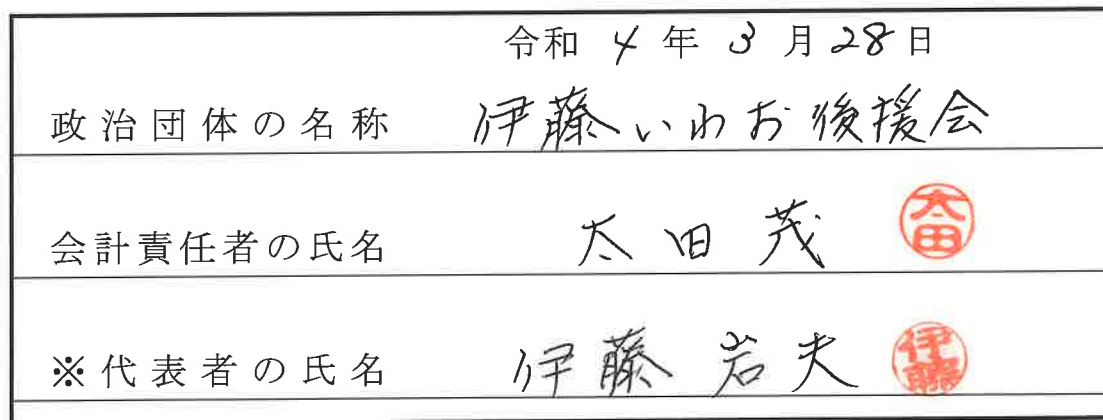 令和 4 年 3 月 28 日
政治団体の名称 伊藤いわお後援会
会計責任者の氏名 太田 茂 太田
※代表者の氏名 伊藤 岩夫 伊藤